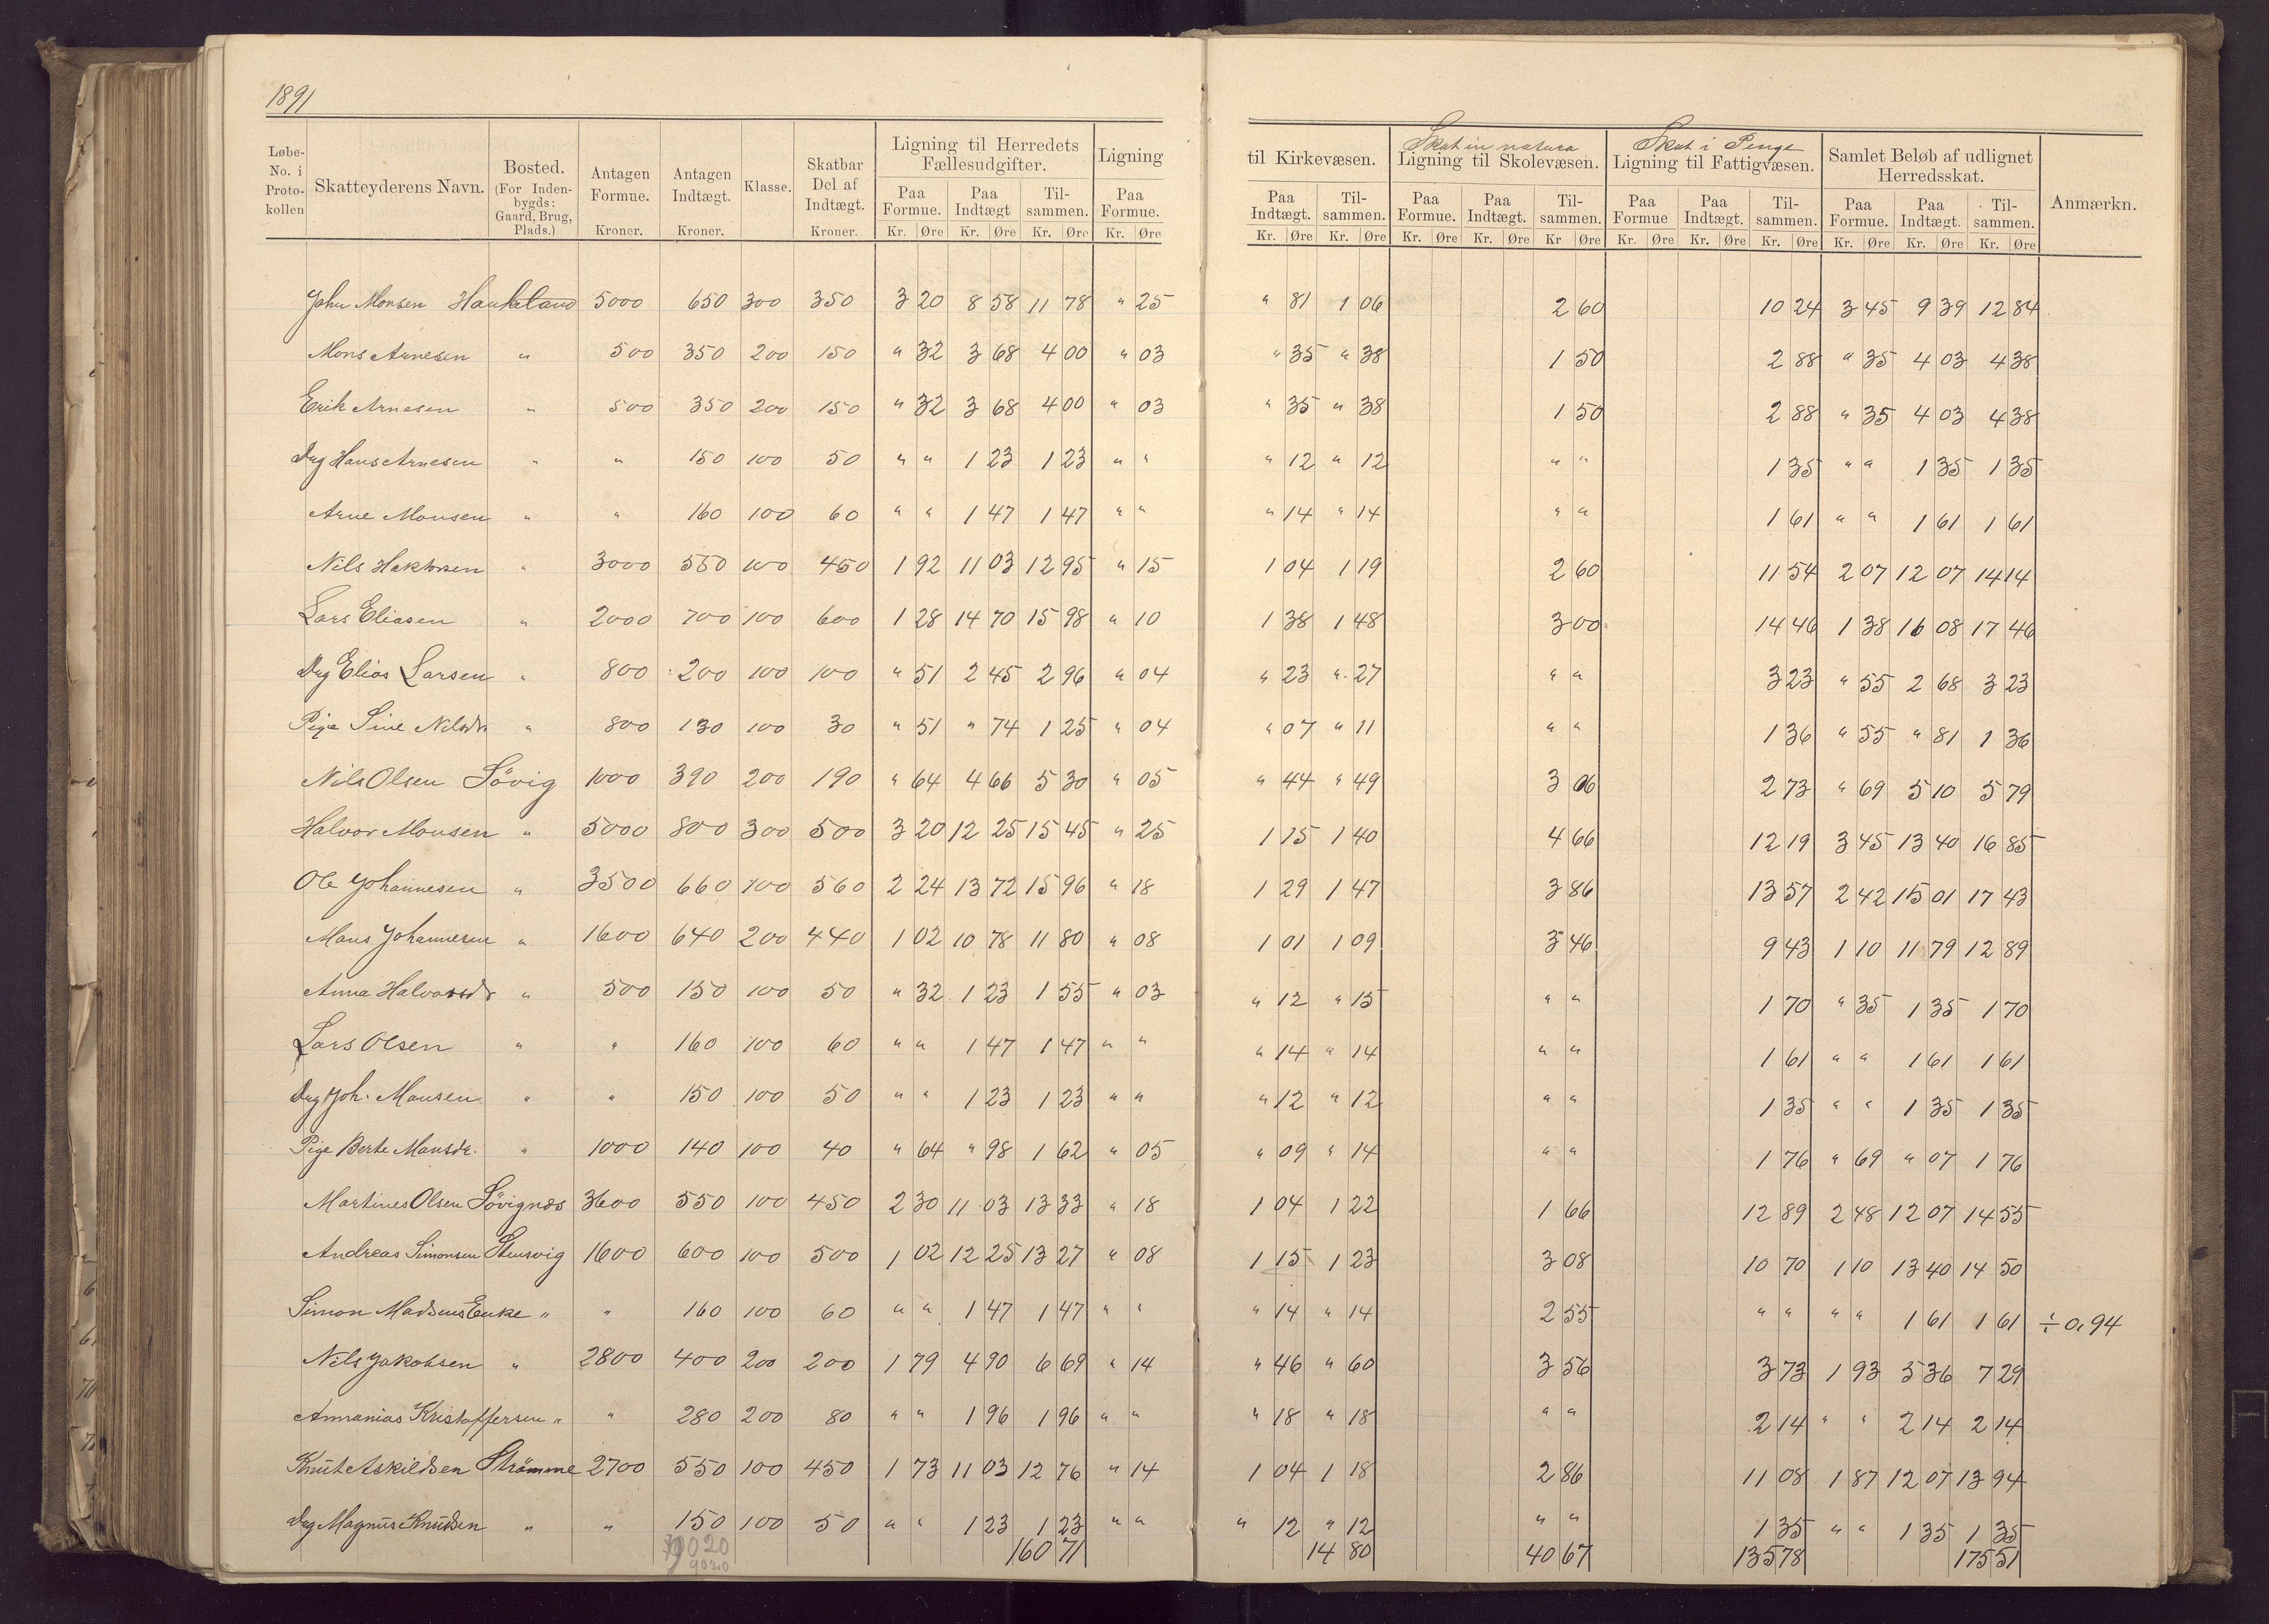 1891
Løbe-No. i Protokollen | Skatteyderens Navn. | Bosted. (For Indenbygds: Gaard, Brug, Plads.) | Antagen Formue. Kroner. | Antagen Indtægt. Kroner. | Klasse. | Skatbar Del af Indtægt. Kroner. | Ligning til Herredets Fællesudgifter. Paa Formue. Kr. Øre | Paa Indtægt Kr. Øre | Tilsammen. Kr. Øre | Ligning til Kirkevæsen. Paa Formue. Kr. Øre | Paa Indtægt. Kr. Øre | Tilsammen. Kr. Øre | Skat in natura Ligning til Skolevæsen. Paa Formue. Kr. Øre | Paa Indtægt. Kr. Øre | Tilsammen. Kr Øre | Skat i Penge Ligning til Fattigvæsen. Paa Formue Kr. Øre | Paa Indtægt. Kr. Øre | Tilsammen. Kr. Øre | Samlet Beløb af udlignet Herredsskat. Paa Formue. Kr. Øre | Paa Indtægt. Kr. Øre | Tilsammen. Kr. Øre | Anmærkn.
John Monsen Haukeland 5000 650 300 350 3 20 8 58 11 78 " 25 " 81 1 06 2 60 10 24 3 45 9 39 12 84
Mons Arnesen " 500 350 200 150 " 32 3 68 4 00 " 03 " 35 " 38 1 50 2 88 " 35 4 03 4 38
Erik Arnesen " 500 350 200 150 " 32 3 68 4 00 " 03 " 35 " 38 1 50 2 88 " 35 4 03 4 38
Dug Hans Arnesen " " 150 100 50 " " 1 23 1 23 " " " 12 " 12 " " 1 35 " " 1 35 1 35
Arne Monsen " " 160 100 60 " " 1 47 1 47 " " " 14 " 14 " " 1 61 " " 1 61 1 61
Nils Haktorsen " 3000 550 100 450 1 92 11 03 12 95 " 15 1 04 1 19 2 60 11 54 2 07 12 07 14 14
Lars Eliasen " 2000 700 100 600 1 28 14 70 15 98 " 10 1 38 1 48 3 00 14 46 1 38 16 08 17 46
Dug Elias Larsen " 800 200 100 100 " 51 2 45 2 96 " 04 " 23 " 27 " " 3 23 " 55 2 68 3 23
Pige Sine Nilsdr " 800 130 100 30 " 51 " 74 1 25 " 04 " 07 " 11 " " 1 36 " 55 " 81 1 36
Nils Olsen Sövig 1000 390 200 190 " 64 4 66 5 30 " 05 " 44 " 49 3 06 2 73 " 69 5 10 5 79
Halvor Monsen " 5000 800 300 500 3 20 12 25 15 45 " 25 1 15 1 40 4 66 12 19 3 45 13 40 16 85
Ole Johannesen " 3500 660 100 560 2 24 13 72 15 96 " 18 1 29 1 47 3 86 13 57 2 42 15 01 17 43
Mons Johannesen " 1600 640 200 440 1 02 10 78 11 80 " 08 1 01 1 09 3 46 9 43 1 10 11 79 12 89
Anna Halvorsdr " 500 150 100 50 " 32 1 23 1 55 " 03 " 12 " 15 " " 1 70 " 35 1 35 1 70
Lars Olsen " " 160 100 60 " " 1 47 1 47 " " " 14 " 14 " " 1 61 " " 1 61 1 61
Dug Joh. Monsen " " 150 100 50 " " 1 23 1 23 " " " 12 " 12 " " 1 35 " " 1 35 1 35
Pige Berte Monsdr. " 1000 140 100 40 " 64 " 98 1 62 " 05 " 09 " 14 " " 1 76 " 69 " 07 1 76
Martines Olsen Sövignæs 3600 550 100 450 2 30 11 03 13 33 " 18 1 04 1 22 1 66 12 89 2 48 12 07 14 55
Andreas Simonsen Stensvig 1600 600 100 500 1 02 12 25 13 27 " 08 1 15 1 23 3 08 10 70 1 10 13 40 14 50
Simon Madsens Enke " " 160 100 60 " " 1 47 1 47 " " " 14 " 14 2 55 " " " " 1 61 1 61 ÷ 0,94
Nils Jakobsen " 2800 400 200 200 1 79 4 90 6 69 " 14 " 46 " 60 3 56 3 73 1 93 5 36 7 29
Annanias Kristoffersen " " 280 200 80 " " 1 96 1 96 " " " 18 " 18 " " 2 14 " " 2 14 2 14
Knut Askildsen Strømme 2700 550 100 450 1 73 11 03 12 76 " 14 1 04 1 18 2 86 11 08 1 87 12 07 13 94
Dug Magnus Knudsen " " 150 100 50 " " 1 23 1 23 " " " 12 " 12 " " 1 35 " " 1 35 1 35
160 71 14 80 40 67 135 78 175 51
9020